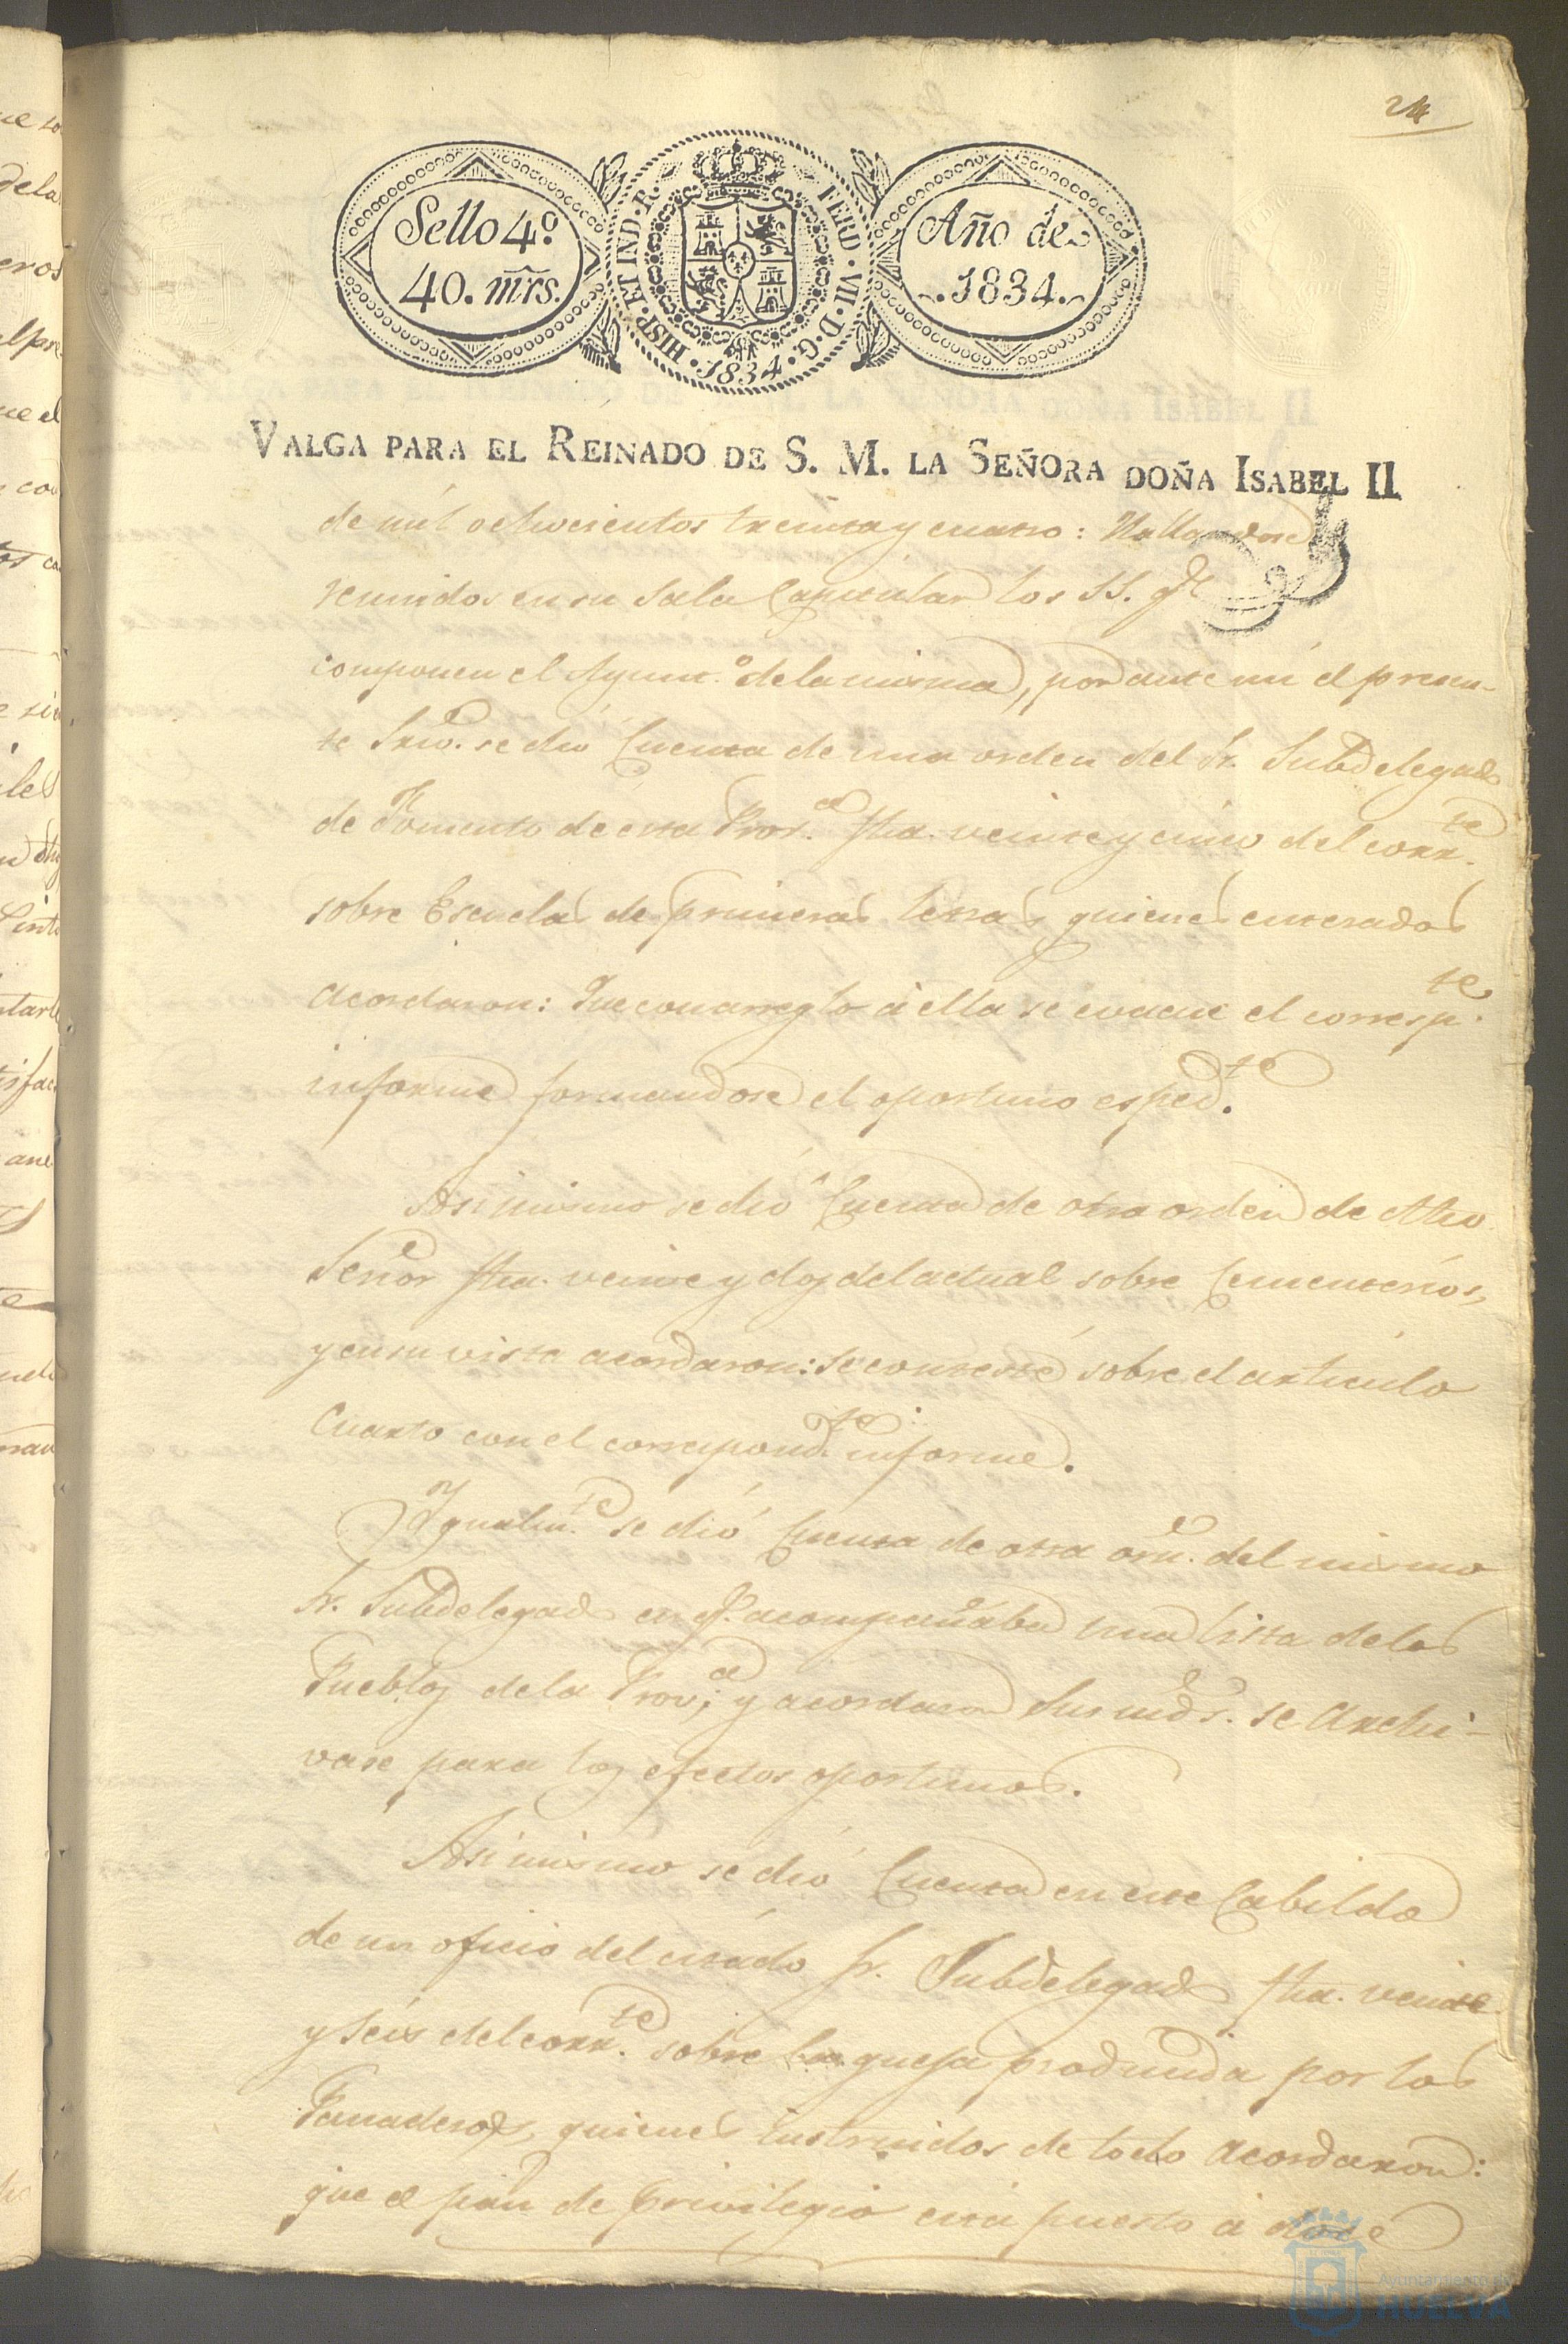 24
Sello 4º
40. mrs.
HISP. ET IND. R. FERD. VII. D. G. 1834.
Año de
1834.
VALGA PARA EL REINADO DE S. M. LA SEÑORA DOÑA ISABEL II
de mil ochocientos treinta y cuatro: Hallandose
reunidos en su Sala Capitular los SS. qe
componen el Ayunt.º de la misma, por ante mi el presen-
te Srio. se dió Cuenta de una orden del Sr. Subdelegado
de Fomento de esta Prov.ª fha. veinte y cinco del corr.te
sobre Escuelas de primeras letras, quienes enterados
acordaron: Que con arreglo á ella se evacue el corresp.te
informe formandose el oportuno esped.te
Asimismo se dió Cuenta de otra orden de dho
Señor fha. veinte y dos del actual sobre Cementerios,
y en su vista acordaron: Se conteste sobre el articulo
Cuarto con el correspond.te informe.
Igualm.te se dió Cuenta de otra orn. del mismo
Sr. Subdelegado en q.e acompañaba una lista de los
Pueblos de la Prov.ª; y acordaron Sus mds. se Archi-
vase para los efectos oportunos.
Asimismo se dió Cuenta en este Cabildo
de un oficio del citado Sr. Subdelegado fha. veinte
y seis del corr.te sobre la queja producida por los
Panaderos, quienes instruidos de todo acordaron:
que el pan de privilegio está puesto á doce
Ayuntamiento de
HUELVA